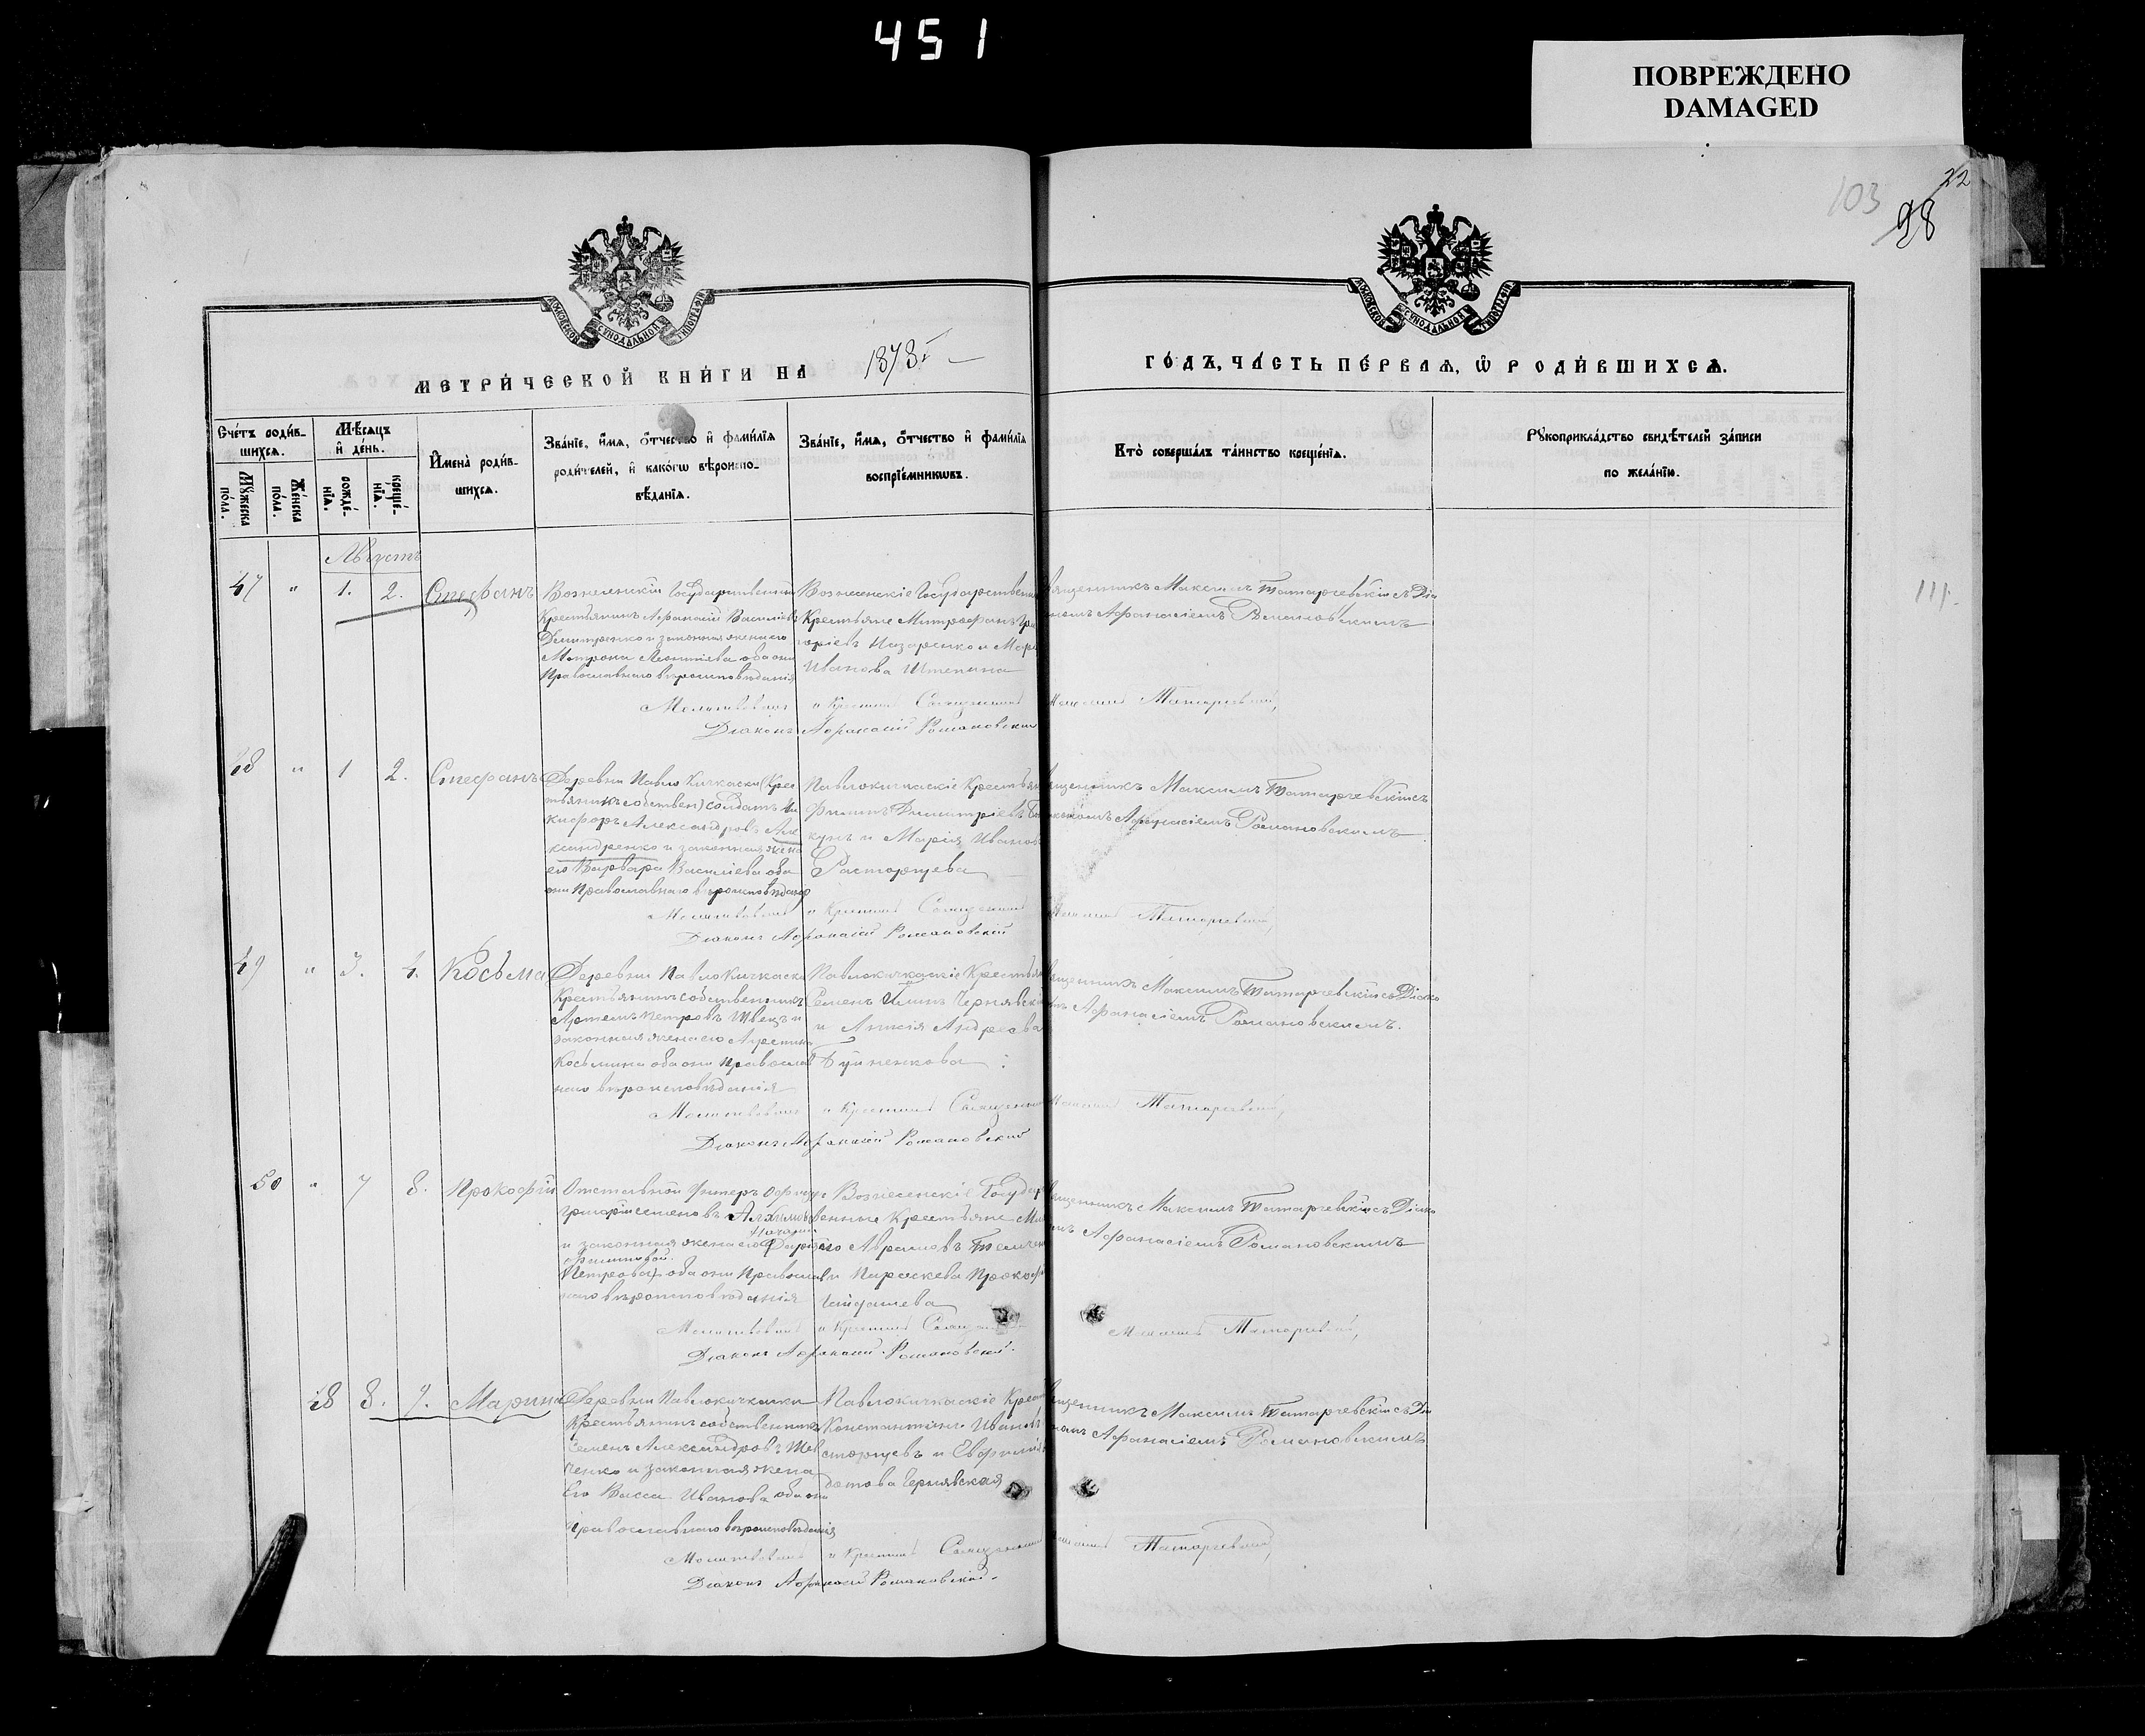 451
ПОВРЕЖДЕНО
DAMAGED
22
103
98
МЕТРИ́ЧЕСКОЙ КНИ́ГИ НА 1878 г.
ГО́ДЪ, ЧА́СТЬ ПЕ́РВАѦ, Ѡ РОДИ́ВШИХСѦ.
Сче́тъ роди́в-
шихсѧ.
Мꙋ́жеска по́ла.
Же́нска по́ла.
Мѣ́сѧцъ
и҆ де́нь.
рожде́-
нїѧ.
креще́-
нїѧ.
И҆мена̀ роди́в-
шихсѧ.
Зва́нїе, и҆́мѧ, ѻ҆́тчество и҆ фами́лїѧ
роди́телей, и҆ како́гѡ вѣроиспо-
вѣ́данїѧ.
Зва́нїе, и҆́мѧ, ѻ҆́тчество и҆ фами́лїѧ
воспрїе́мникѡвъ.
Кто̀ соверша́лъ та́инство креще́нїѧ.
Рꙋкоприкла́дство свидѣ́телей за́писи
по жела́нїю.
Августъ
47 " 1. 2. Стефанъ
Вознесенскій Государственный
Крестьянинъ Афанасій Васильевъ
Дмитренко и законная жена его
Матрона Леонтіева оба они
Православнаго вѣроисповѣданія
Вознесенскіе Государствен
Крестьяне Митрофанъ Гри
горіевъ Назаренко и Мар
Иванова Штепина
Священникъ Максимъ Татарчевскій съ Діа
Афанасіемъ Романовскимъ
Молитвовалъ и Крестилъ Священникъ Максимъ Татарчевскій,
Діаконъ Афанасій Романовскій
48 " 1 2. Стефанъ
Деревни Павло Кичкаски (Крес
тьянинъ собствен) солдатъ Ни
кифоръ Александровъ Але
ксандренко и законная жена
его Варвара Василіева оба
они Православнаго вѣроисповѣдан
Павлокичкаскіе Крестьян
Филипъ Димитріевъ
и Марія Иванов
Расторгуева
Священникъ Максимъ Татарчевскій съ
Афанасіемъ Романовскимъ
Молитвовалъ и Крестилъ Священникъ Максимъ Татарчевскій,
Діаконъ Афанасій Романовскій
49 " 3. 4. Косьма
Деревни Павло Кичкаска
Крестьянинъ собственникъ
Артемъ Петровъ Швецъ и
законная жена его
Косьмина оба они Православ
наго вѣроисповѣданія
Павлокичкаскіе Крестьян
Семенъ Ильинъ Чернявскі
и Андреева
Священникъ Максимъ Татарчевскій съ Діако
Афанасіемъ Романовскимъ.
Молитвовалъ и Крестилъ Священникъ Максимъ Татарчевскій,
Діаконъ Афанасій Романовскій
50 " 7 8. Прокофій
Отставной Унтеръ Офицеръ
Григорій Степановъ
и законная жена его
Петрова) оба они Православ
наго вѣроисповѣданія
Вознесенскіе Государ
венные Крестьяне
Аврамовъ
и Параскева Прокоф
Священникъ Максимъ Татарчевскій съ Діако
Афанасіемъ Романовскимъ
Молитвовалъ и Крестилъ Священникъ Максимъ Татарчевскій,
Діаконъ Афанасій Романовскій.
8. 9. Марина
Деревни Павлокичкаска
Крестьянинъ собственникъ
Семенъ Александровъ Шев
ченко и законная жена
Его Васса Иванова оба они
Православнаго вѣроисповѣданія
Павлокичкаскіе Крест
Константинъ Иванов
сторгуевъ и Евфимія
дотова Чернявская
Священникъ Максимъ Татарчевскій съ Діа
Афанасіемъ Романовскимъ
Молитвовалъ и Крестилъ Священникъ Максимъ Татарчевскій,
Діаконъ Афанасій Романовскій.